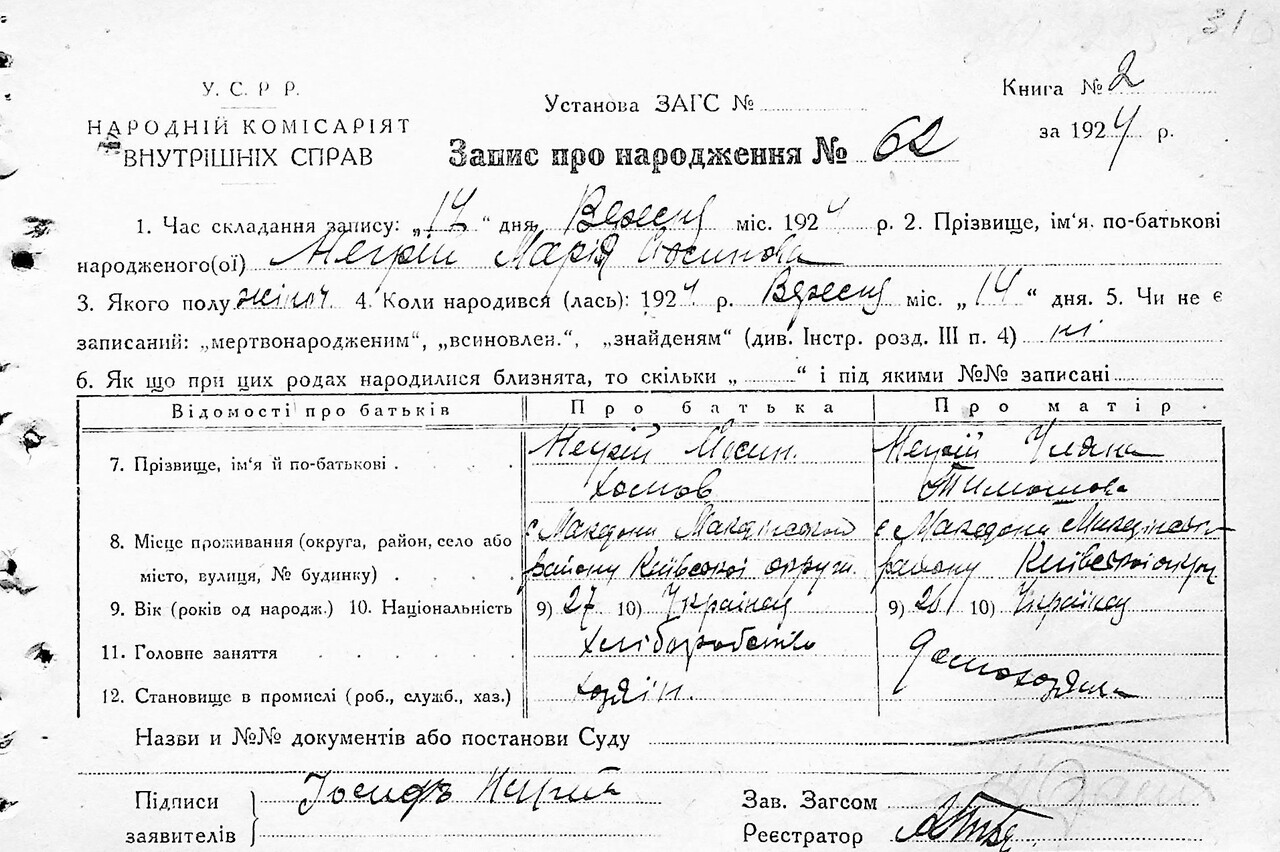 31
У. С. Р Р.
НАРОДНІЙ КОМІСАРІЯТ
ВНУТРІШНІХ СПРАВ
Установа ЗАГС №
Запис про народження № 62
Книга № 2
за 1924 р.
1. Час складання запису: „17“ дня Вересня міс. 1924 р. 2. Прізвище, ім‘я. по-батькові
народженого(ої) Негрій Марія Осипова
3. Якого полу жіноч 4. Коли народився (лась): 1924 р. Вересня міс. „14“ дня. 5. Чи не є
записаний: „мертвонародженим“, „всиновлен.“, „знайденям“ (див. Інстр. розд. III п. 4) ні
6. Як що при цих родах народилися близнята, то скільки „ “ і під якими №№ записані
Відомості про батьків Про батька Про матір.
7. Прізвище, ім‘я й по-батькові . Негрій Йосип. Негрій Уляна
Хомов Тимошова
8. Місце проживання (округа, район, село або с Македони с Македони
місто, вулиця, № будинку) . . . району Київської округи. району Київської округи
9. Вік (років од народж.) 10. Національність 9) 27 10) Українец 9) 26 10) Українец
11. Головне заняття . . . . . Хліборобство
12. Становище в промислі (роб., служб., хаз.) хозяїн. Домохозяйка
Назви и №№ документів або постанови Суду
Підписи
заявителів
Іосифъ Негрій
Зав. Загсом
Реєстратор